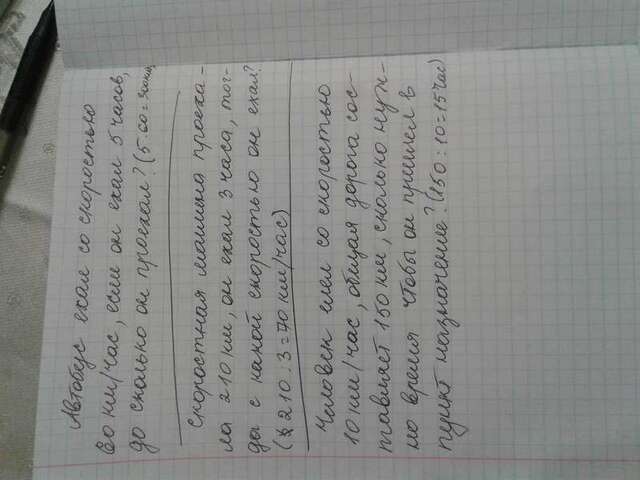 Автобус ехал со скоростью
60 км/час, если он ехал 5 часов,
до сколько он проехал? (5·60=300км
Скоростная машина проеха-
ла 210 км, он ехал 3 часа, тог-
да с какой скоростью он ехал?
(210:3=70 км/час)
Человек шел со скоростью
10 км/час, общая дорога сос-
тавляет 150 км, сколько нуж-
но время чтобы он пришел в
пункт назначение? (150:10=15час)